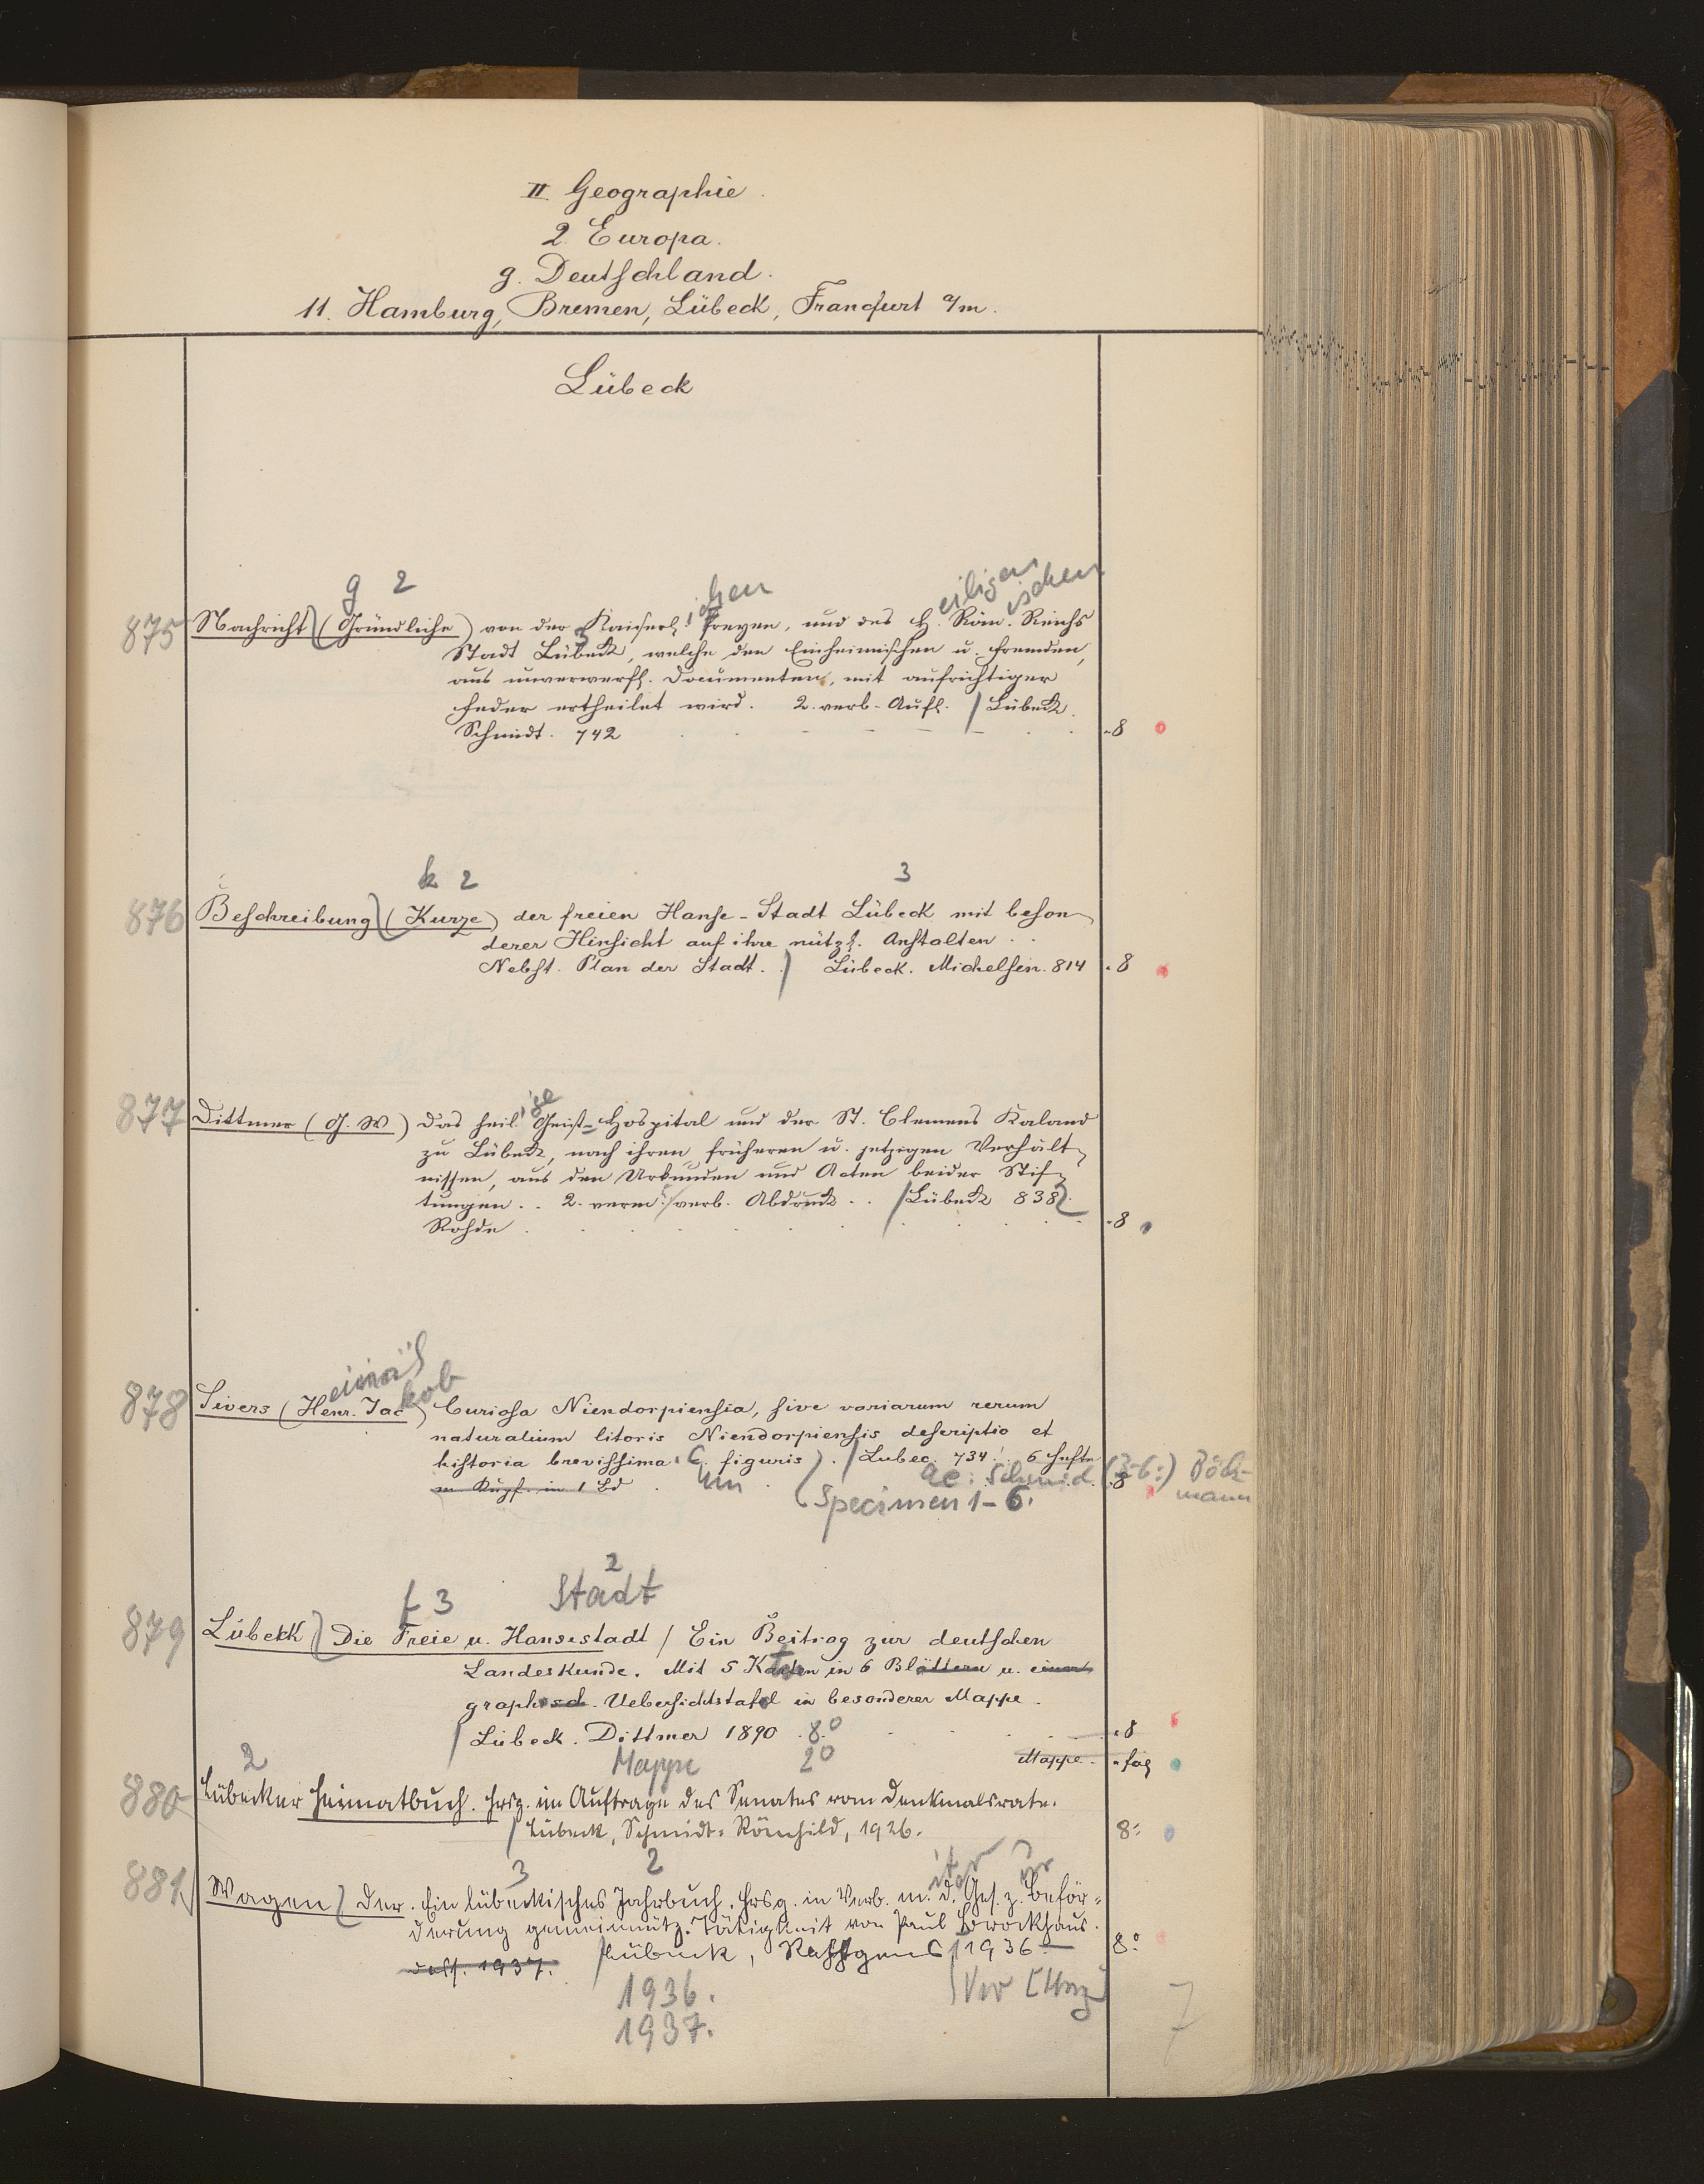 II Geographie.
2. Europa.
g. Deutschland.
11. Hamburg, Bremen, Lübeck, Francfurt a/m.
Lübeck
g 2 chen eiligen ischen
875 Nachricht (Gründliche) von der Kaiserl. Freyen, und des H. Röm. Reichs
3
Stadt Lübeck, welche den Einheimischen u. Fremden,
aus unverwerfl. Documenten, mit aufrichtiger
Feder ertheilet wird. 2. verb. Aufl. / Lübeck.
Schmidt. 742 8
k 2 3
876 Beschreibung (Kurze) der freien Hanse-Stadt Lübeck mit beson-
derer Hinsicht auf ihre nützl. Anstalten ..
Nebst. Plan der Stadt. / Lübeck. Michelsen. 814 8
ige
877 Dittmer (G. W) Das heil. Geist-Hospital und der St. Clemens Kaland
zu Lübeck, nach ihren früheren u. jetzigen Verhält-
nissen, aus den Urkunden und Acten beider Stif-
tungen .. 2. verm. verb. Abdruck .. / Lübeck 838.
Rohde 8
kob
878 Sivers (Henr. Jac) Curiosa Niendorpiensia, sive variarum rerum
naturalium litoris Niendorpiensis descriptio et
historia brevissima. C. figuris). / Lubec. 734. 6 Hefte
m Kupf. in 1 Bd um ae: Schmid. (3-6:) Böck- 8
mann
Specimen 1-6.
2
f 3 Stadt
879 Lübeck Die Freie u. Hansestadt / Ein Beitrag zur deutschen
Landeskunde. Mit 5 Karten in 6 Blättern u. einer
graphisch. Uebersichtstafel in besonderer Mappe.
/ Lübeck. Dittmer 1890. 8.° 8
Mappe 2° Mappe fol
2
880 Lübecker Heimatbuch. Hrsg. im Auftrage des Senates vom Denkmalsrate.
/ Lübeck, Schmidt-Römhild, 1926. 8°
3 2 it der ur
881 Wagen Der. Ein lübeckisches Jahrbuch. Hrsg. in Verb. m. d. Ges. z. Beför-
derung gemeinnütz. Tätigkeit von Paul Brockhaus.
dass. 1937. / Lübeck, Rahtgens 1936 8°
1936.
1937.
7